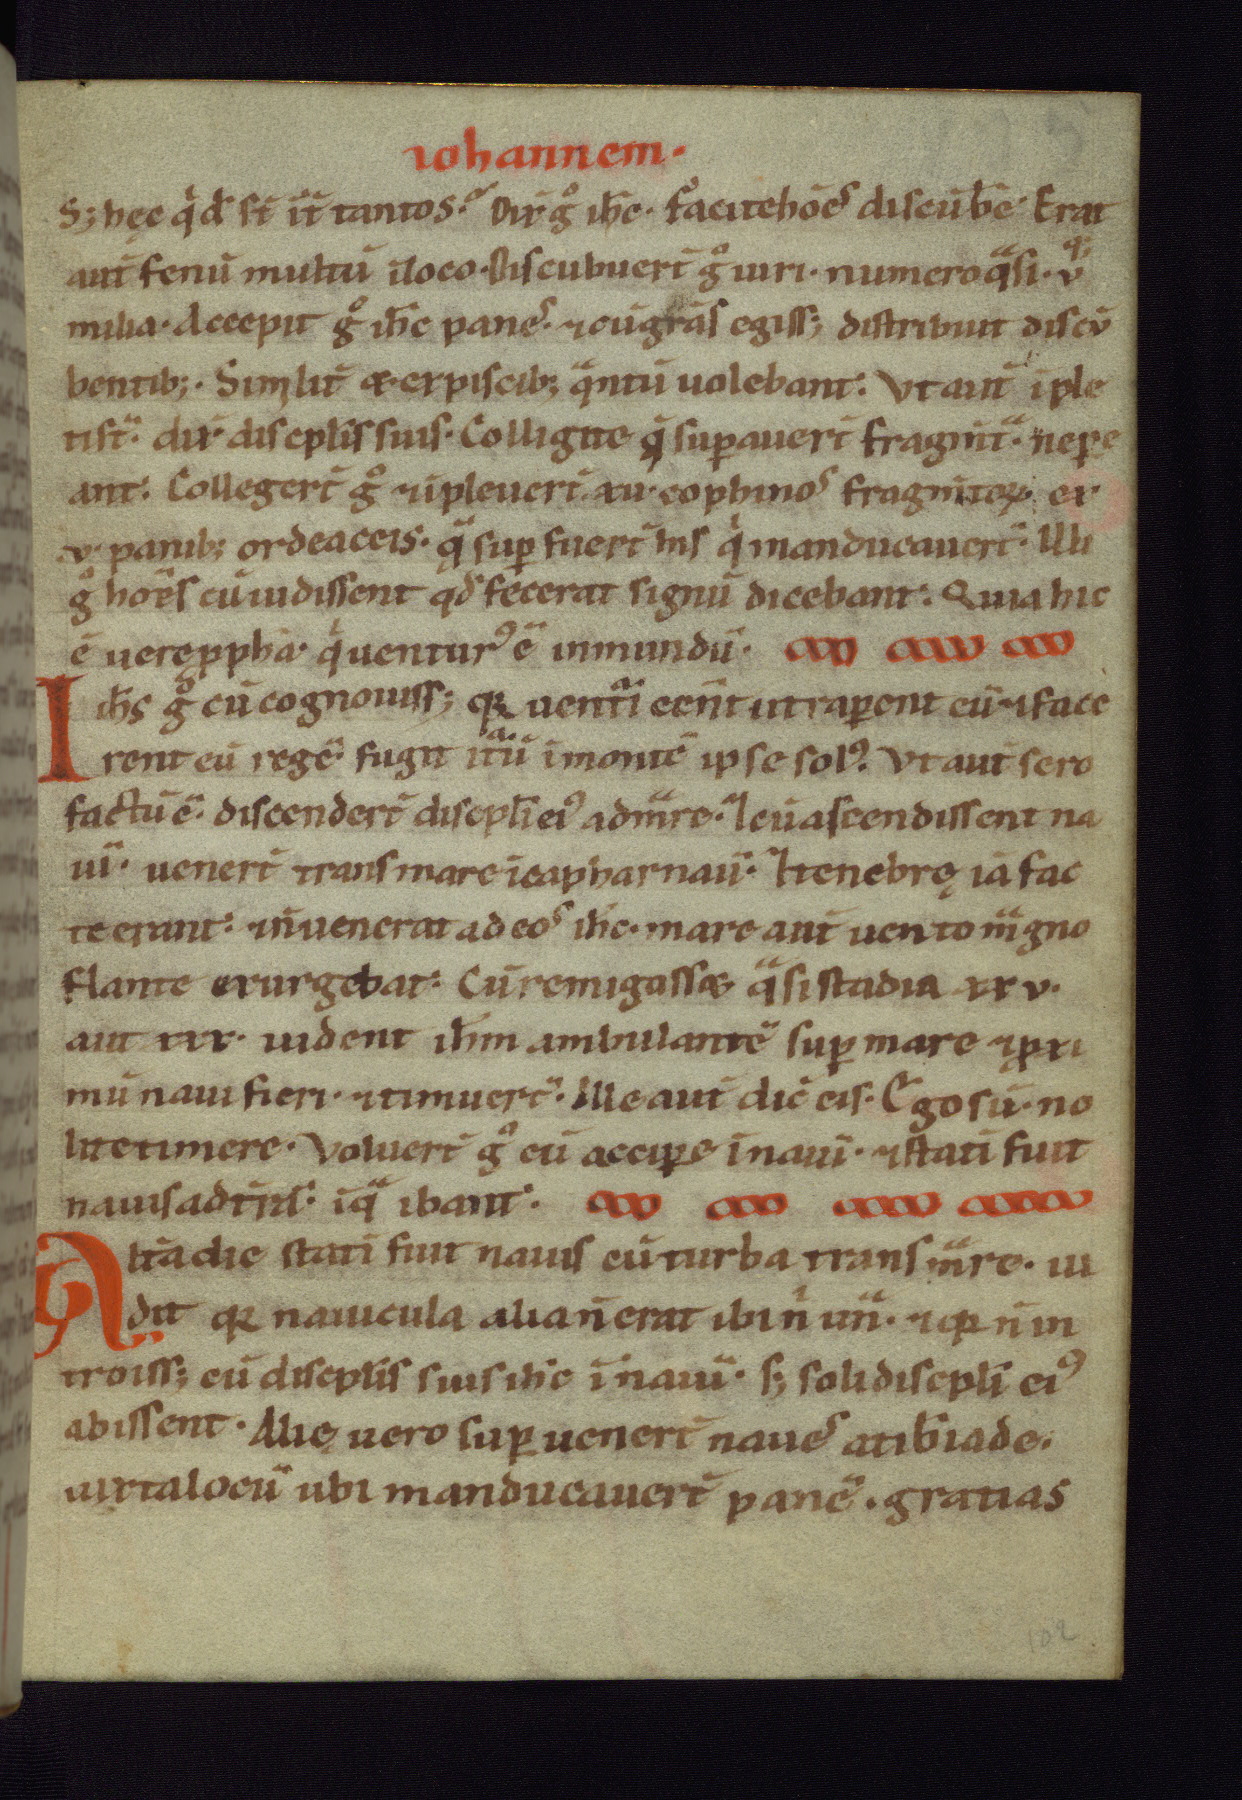 iohannem.
S; hęc q̇d s̄t īt̄ tantos. Dix g̊ ih̄c. facite hōēs discūb̄e. Erat
aut̄ fenū multū īloco. Discubuer̄t g̊ uiri. numero qͣsi. v
milia. Accepit g̊ ih̄c panes. ⁊ cū gr̄as egiss; distribuit discū
bentib;. Similit̄ & ex piscib; qͣntū uolebant. Vt aut̄ īple
ti s̄t. dix discpl̄is suis. Colligite q̄ suꝑauer̄t fragm̄tͣ. ne ꝑe
ant. Colleger̄t g̊ ⁊ īpleuer̄t .xii. cophinos fragm̄toꝝ. ex
.v. panib; ordeaceis. qͣ suꝑ fuer̄t his q̇ manducauer̄t. Illi
g̊ hoīes cū uidissent qd̄ fecerat signū dicebant. Quia hic
ē uere ꝓpha. q̇ uenturꝰ ē inmundū.
Ih̄s g̊ cū cognouiss; qꝛ uentͥi eēnt ut raꝑent eū ⁊ face
rent eū regē. fugit itͣū ī montē ipse solꝰ. Vt aut̄ sero
factū ē. discender̄t discpl̄i eiꝰ admͣre. ⁊ cū ascendissent na
uī. uener̄t trans mare īcapharnaū. ⁊ tenebrę iā fac
te erant. ⁊ n̄ uenerat ad eos ih̄c. mare aut̄ uento mͣgno
flante exurgebat. Cū remigass& qͣsi stadia xxv.
aut xxx. uident ih̄m ambulantē suꝑ mare ⁊ ꝓxi
mū naui fieri. ⁊ timuer̄t. Ille aut̄ dic̄ eis. Ego sū. no
lite timere. Voluer̄t g̊ eū acciꝑe īnauī. ⁊ statī fuit
nauis ad t̄rā. īqͣ ibant.
Alt̄a die statī fuit nauis cū turba trans mͣre. ui
dit qꝛ nauicula alia n̄ erat ibi n̄ unͣ. ⁊ qꝛ n̄ in
troiss; cū discpl̄is suis ih̄c ī nauī. s; soli discpl̄i eiꝰ
abissent. Alię uero suꝑ uener̄t naues atib̄iade.
iuxta locū ubi manducauer̄t panē. gratias
102